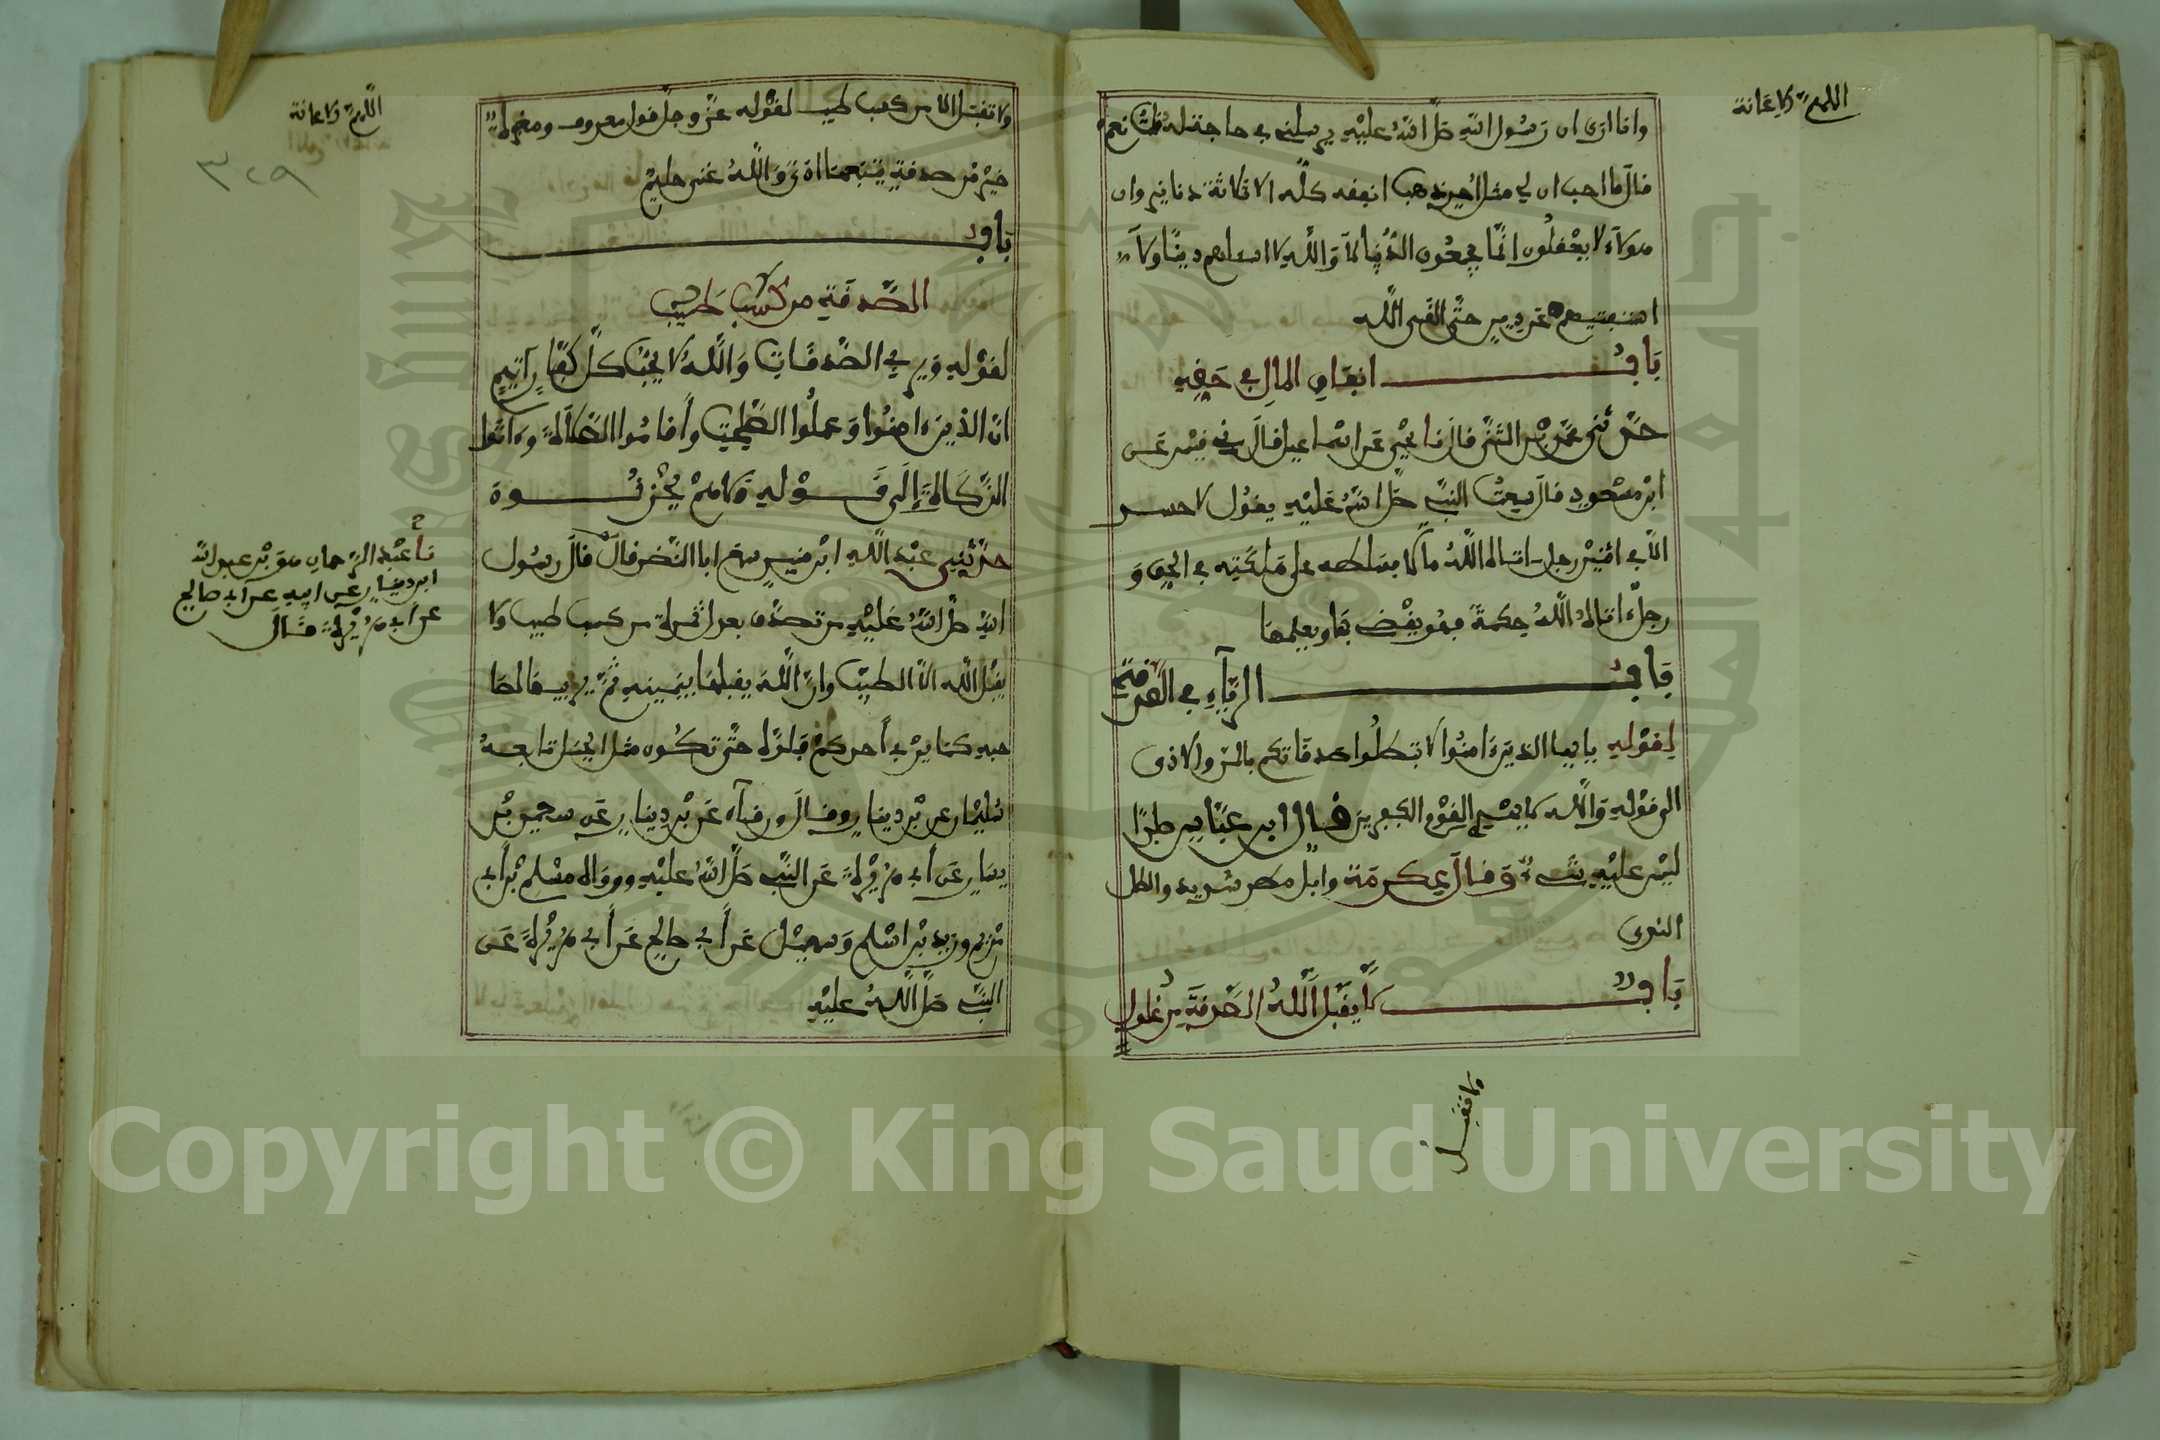 اللهم الاعانة
وانا ارى ان رسول الله صلى الله عليه يرسلني في حاجة له قلت نعم
قال ما احب ان لي مثل احد ذهبا انفقه كله الا ثلاثة دنانير وان
هولاء لا يعقلون انما يجمعون الدنيا لا والله لا اسالهم دينا ولا
استفتيهم عن دين حتى القى الله
باب انفاق المال في حقه
حدثني محمد بن المثنى قال نا يحيى عن اسماعيل قال ني قيس عن
ابن مسعود قال سمعت النبي صلى الله عليه يقول لا حسد
الا في اثنين رجل اتاه الله مالا فسلطه على هلكته في الحق و
رجل اتاه الله حكمة فهو يقضي بها ويعلمها
باب الرياء في الصدقة
لقوله يايها الذين ءامنوا لا تبطلوا صدقاتكم بالمن والاذى
الى قوله والله لا يهدي القوم الكفرين قال ابن عباس صلدا
ليس عليه شيء وقال عكرمة وابل مطر شديد والطل
الندى
باب لا يقبل الله الصدقة من غلول
ولا تقبل
اللهم الاعانة
٣٢٩
ولا تقبل الا من كسب طيب لقوله عز وجل قول معروف ومغفرة
خير من صدقة يتبعها اذى والله غني حليم
باب
الصدقة من كسب طيب
لقوله ويربي الصدقات والله لا يحب كل كفار اثيم
ان الذين ءامنوا وعملوا الصلحت وأقاموا الصلاة وءاتوا
الزكاة إلى قوله ولا هم يحزنون
حدثني عبد الله ابن منير سمع ابا النضر قال قال رسول
الله صلى الله عليه من تصدق بعدل تمرة من كسب طيب ولا
يقبل الله الا الطيب وان الله يقبلها بيمينه ثم يربيها لصا
حبه كما يربي أحدكم فلوه حتى تكون مثل الجبل تابعه
سليمان عن بن دينار وقال ورقاء عن بن دينار عن سعيد بن
يسار عن أبي هريرة عن النبي صلى الله عليه ورواه مسلم بن أبي
مريم وزيد بن اسلم وسهيل عن أبي صالح عن أبي هريرة عن
النبي صلى الله عليه
نا عبد الرحمان هو بن عبد الله
ابن دينار عن ابيه عن ابي صالح
عن ابي هريرة قال
Copyright © King Saud University